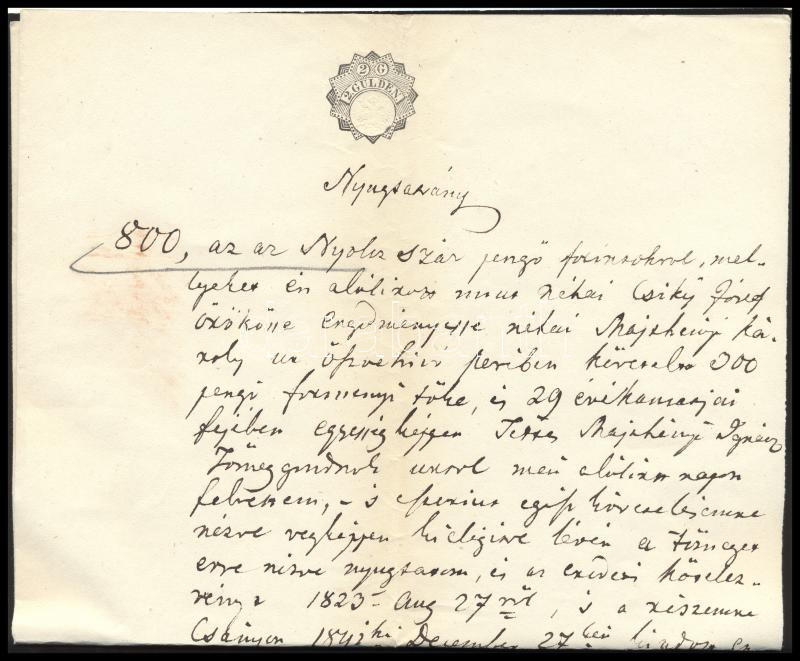 2 G
2 GULDEN
Nyugtatvány
800, az az Nyolcz száz pengő forintokrol, mel-
lyeket én alólirott mint néhai Csiky József
örököse engedményesse néhai Majthényi Ká-
roly ur ellen perben követelt 300
pengő forintnyi tőke, és 29 évi kamatjai
fejében egyességképpen Majthényi Ignácz
Tömeggondnok urtol mai alólirt napon
felvettem, – s egész követelésemre
nézve végképpen kielégitve lévén a tömeget
erre nézve nyugtatom, és az eredeti kötelez-
vényt 1823 Aug 27ről, s a részemre
Csányon December 27